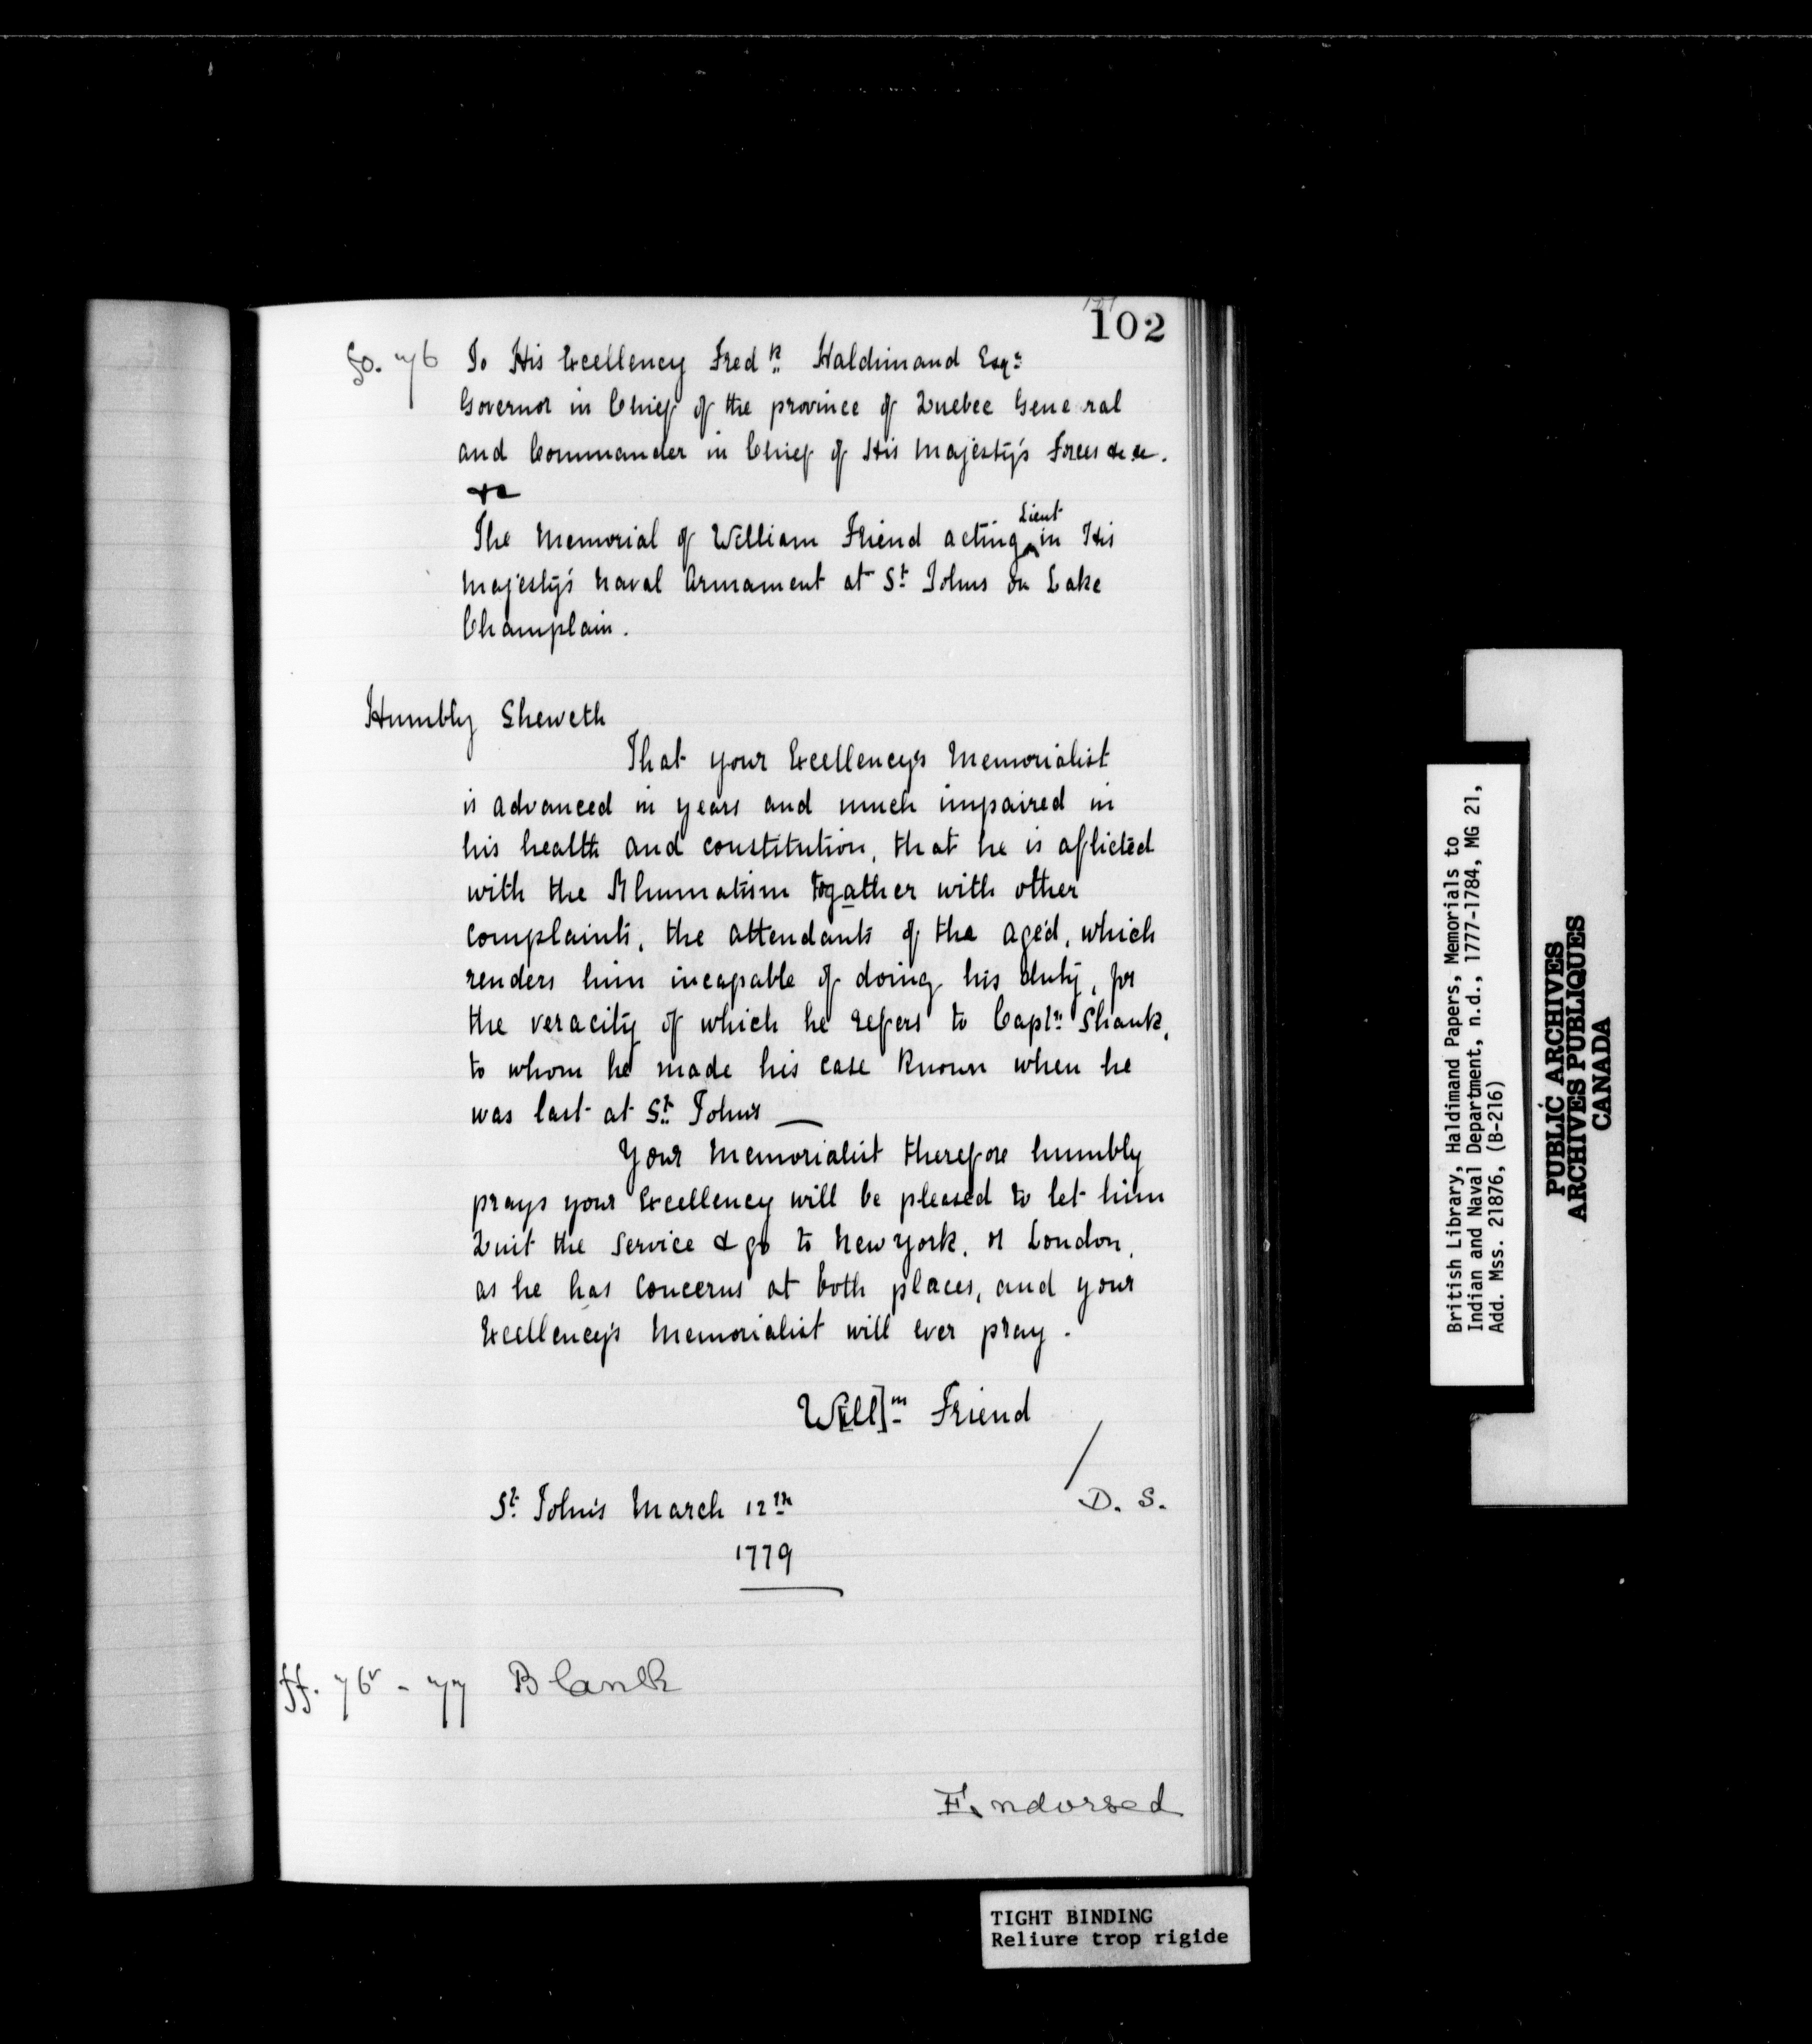 102
fo. 76 To His Excellency Fredk Haldimand Esqr
Governor in Chief of the province of Quebec General
and Commander in Chief of His Majesty's Forces &c &c.
&c
The Memorial of William Friend acting Lieut in His
Majesty's Naval Armament at St Johns on Lake
Champlain.
Humbly Sheweth
That your Excellency's Memorialist
is advanced in years and much impaired in
his health and constitution, that he is aflicted
with the Rhumatism togather with other
complaints, the attendants of the aged, which
renders him incapable of doing his duty, for
the veracity of which he refers to Captn Shank,
to whom he made his case known when he
was last at St John's —
Your Memorialist therefore humbly
prays your Excellency will be pleased to let him
Quit the Service & go to New york, or London,
as he has concerns at both places, and your
Excellency's Memorialist will ever pray.
W[ill]m Friend
/
D. S.
St John's March 12th
1779
ff. 76v - 77 Blank
Endorsed
TIGHT BINDING
Reliure trop rigide
British Library, Haldimand Papers, Memorials to
Indian and Naval Department, n.d., 1777-1784, MG 21,
Add. Mss. 21876, (B-216)
PUBLIC ARCHIVES
ARCHIVES PUBLIQUES
CANADA